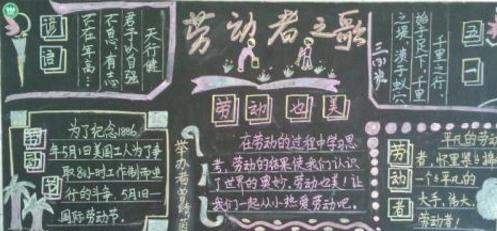 劳动者之歌
谚语
天行健
君子以自强
不息;有志
不在年高…
五一
千里之行
始于足下,千里
之堤,溃于蚁穴
三(3)班
劳动也美
在劳动的过程中学习思
考,劳动的结果使我们认识
了世界的奥妙,劳动也美!让
我们一起从小热爱劳动吧。
劳动节
为了纪念1886
年5月1美国工人为了争
取8小时工作制而业
行的斗争.5月1—
国际劳动节。
劳动者
平凡的劳动
者,怀里装
一个多平凡的
大手,伟大
劳动者!